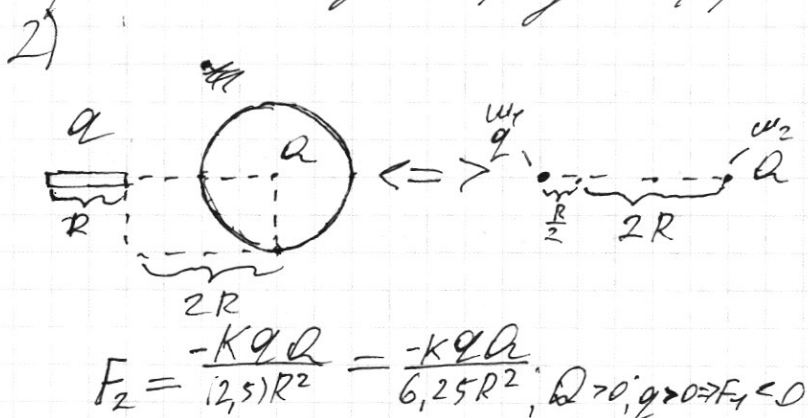 2)
q
Q
<=>
ш1
q
ш2
Q
R
R/2
2R
2R
F2 = -KqQ/(2,5)R² = -KqQ/6,25R²; Q>0; q>0=>F1<0